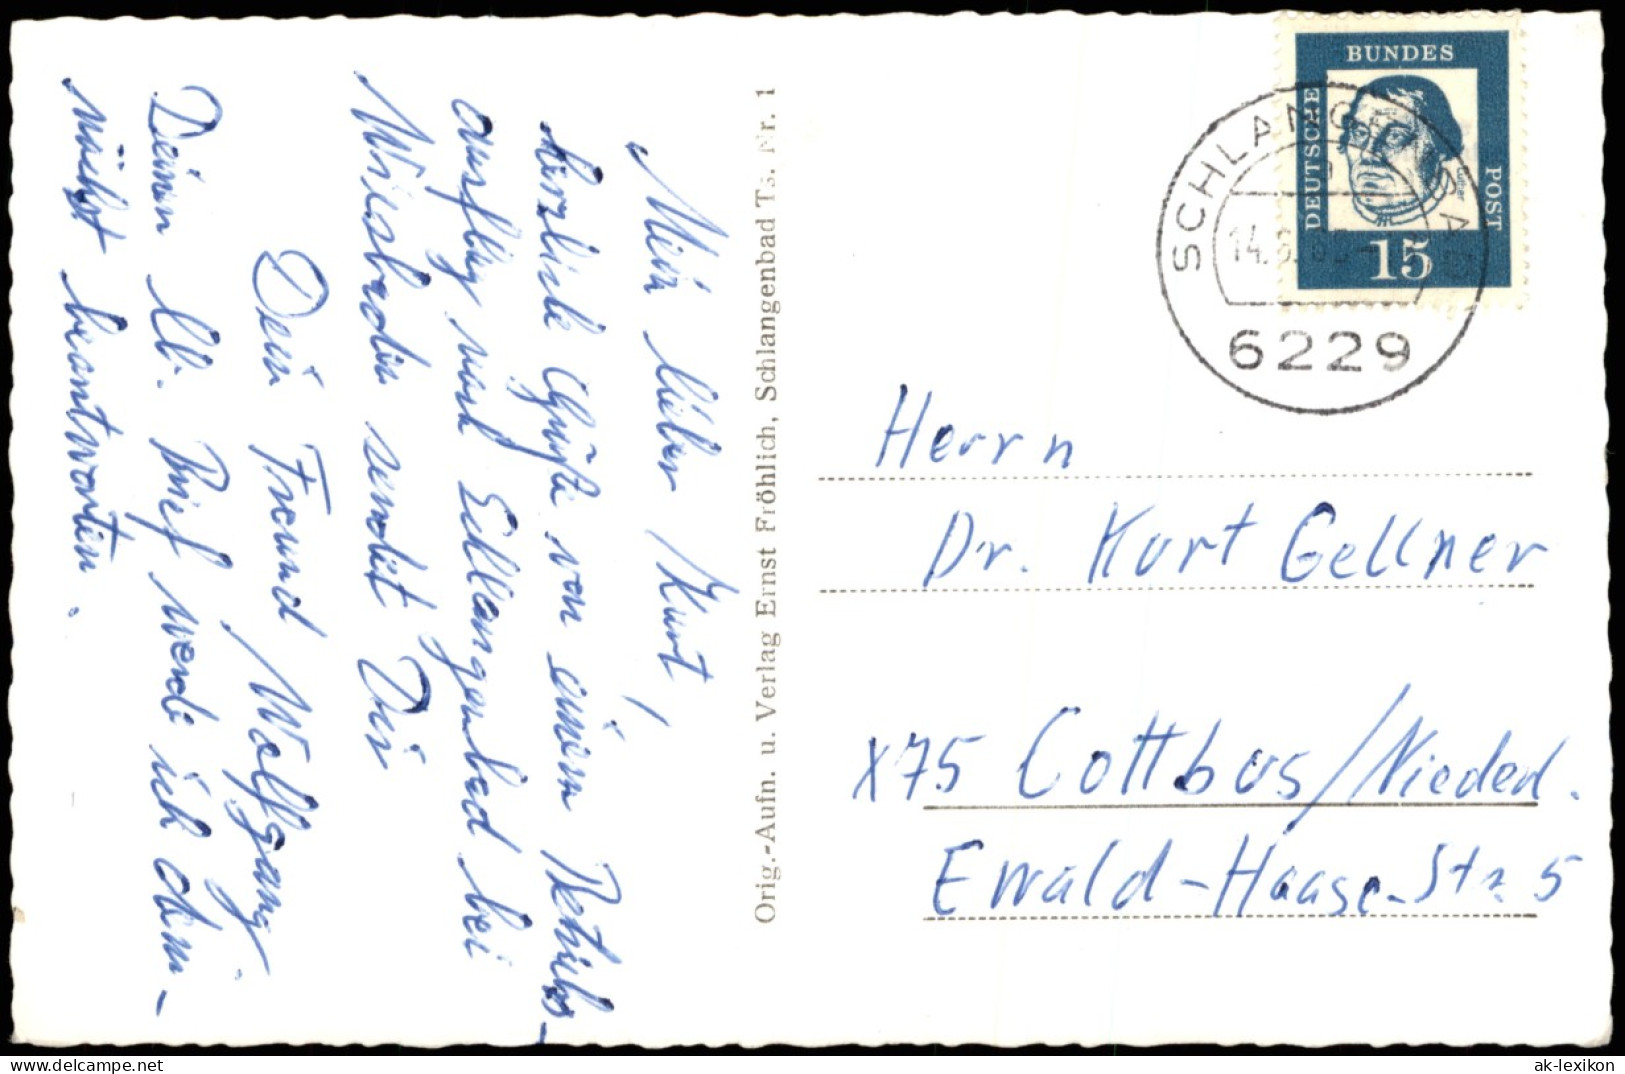 Mein lieber Kurt,
herzliche Grüße von einem Betriebs-
ausflug nach Schlangenbad bei
Wiesbaden sendet Dir
Dein Freund Wolfgang
Deinen lb. Brief werde ich dem-
nächst beantworten.
Orig.-Aufn. u. Verlag Ernst Fröhlich, Schlangenbad Ts. Nr. 1
DEUTSCHE
BUNDES
POST
15
SCHLANGENBAD
6229
Herrn
Dr. Kurt Gellner
X75 Cottbus/Niederl.
Ewald-Haase-Str. 5
ak-lexikon
delcampe.net